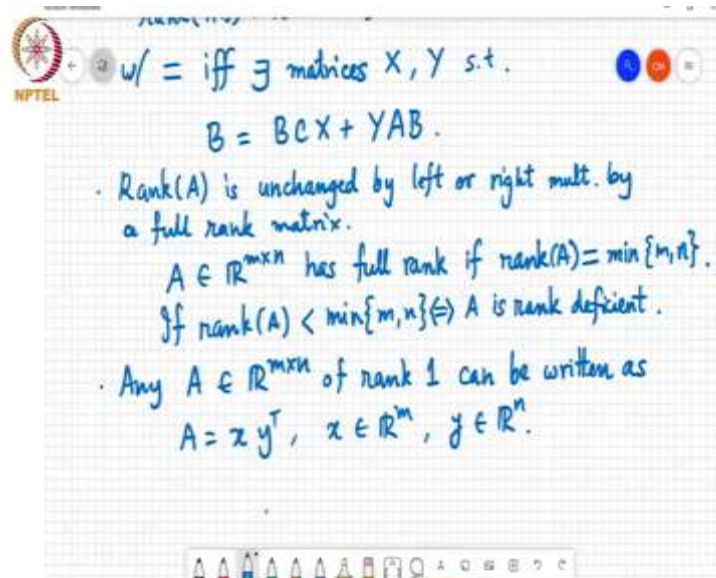 w/ = iff ∃ matrices X, Y s.t.
NPTEL
B = BCX + YAB.
· Rank(A) is unchanged by left or right mult. by
a full rank matrix.
A ∈ ℝ^{m×n} has full rank if rank(A) = min{m,n}.
If rank(A) < min{m,n} ⇔ A is rank deficient.
· Any A ∈ ℝ^{m×n} of rank 1 can be written as
A = x y^T, x ∈ ℝ^m, y ∈ ℝ^n.